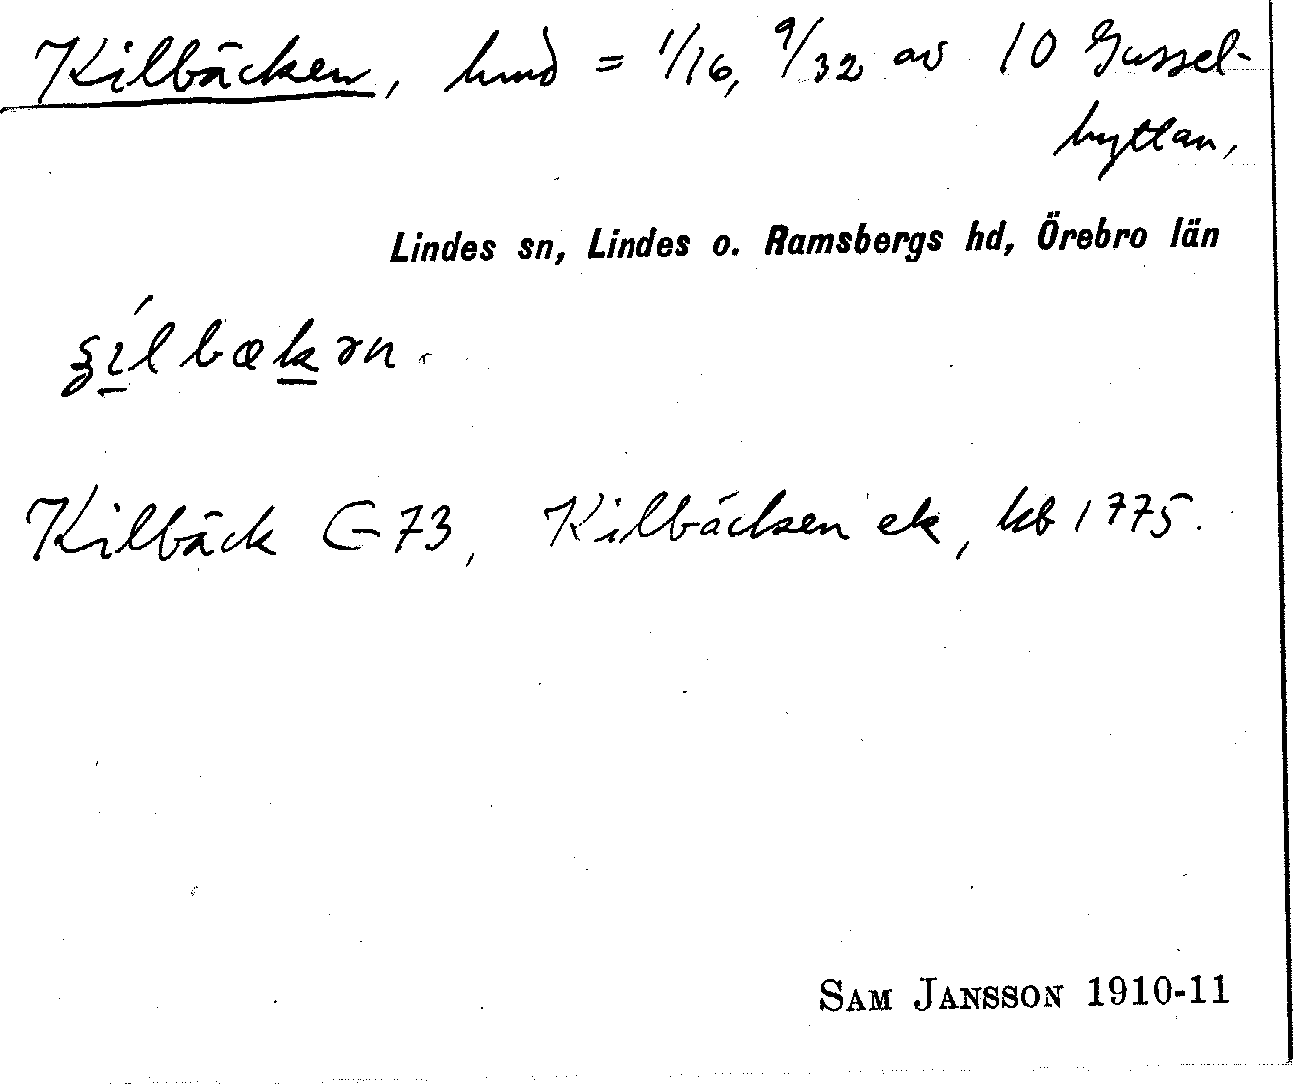 Kilbäcken, hmd = 1/16, 9/32 av 10 Gussel-
hyttan,
Lindes sn, Lindes o. Ramsbergs hd, Örebro län
Kilbäck G 73, Kilbäcken ek, kb 1775.
SAM JANSSON 1910-11